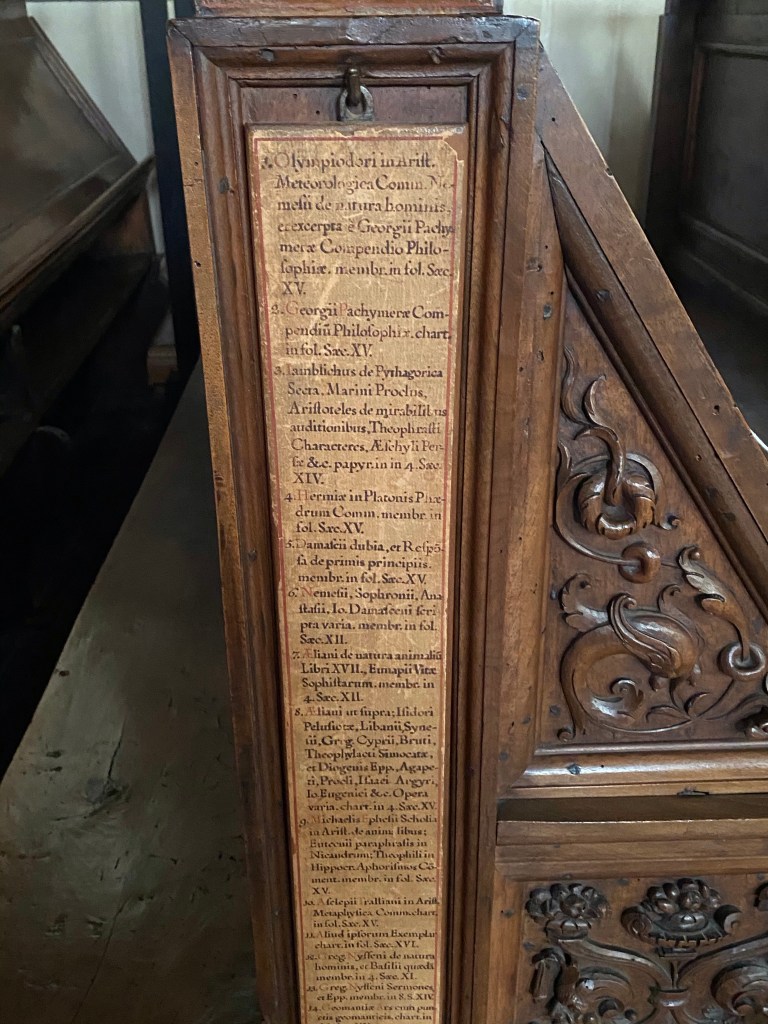 1. Olympiodori in Arist.
Meteorologica Comm. Ne-
mesii de natura hominis,
et excerpta è Georgii Pachy-
meræ Compendio Philo-
sophiæ. membr. in fol. Sæc.
XV.
2. Georgii Pachymeræ Com-
pendiū Philosophiæ. chart.
in fol. Sæc. XV.
3. Iamblichus de Pythagorica
Secta, Marini Proclus,
Aristoteles de mirabilibus
auditionibus, Theophrasti
Characteres, Æschyli Per-
sæ &c. papyr. in in 4. Sæc.
XIV.
4. Hermiæ in Platonis Phæ-
drum Comm. membr. in
fol. Sæc. XV.
5. Damascii dubia, et Respō-
sa de primis principiis.
membr. in fol. Sæc. XV.
6. Nemesii, Sophronii, Ana
stasii, Io. Damasceni scri-
pta varia. membr. in fol.
Sæc. XII.
7. Æliani de natura animaliū
Libri XVII., Eunapii Vitæ
Sophistarum. membr. in
4. Sæc. XII.
8. Æliani ut supra; Isidori
Pelusiotæ, Libanii, Syne-
sii, Greg. Cyprii, Bruti,
Theophylacti Simocatæ,
et Diogenis Epp., Agape-
ti, Procli, Isaaci Argyri,
Io. Eugenici &c. Opera
varia. chart. in 4. Sæc. XV.
9. Michaelis Ephesii Scholia
in Arist. de animalibus;
Eutecnii paraphrasis in
Nicandrum; Theophili in
Hippocr. Aphorismos Cō
ment. membr. in fol. Sæc.
XV.
10. Asclepii Tralliani in Arist.
Metaphysica Comm. chart.
in fol. Sæc. XV.
11. Aliud ipsorum Exemplar
chart. in fol. Sæc. XVI.
12. Greg. Nysseni de natura
hominis, et Basilii quædā
membr. in 4. Sæc. XI.
13. Greg. Nysseni Sermones,
et Epp. membr. in 8. S. XIV.
14. Geomantiæ Ars cum pun-
ctis geomanticis. chart. in